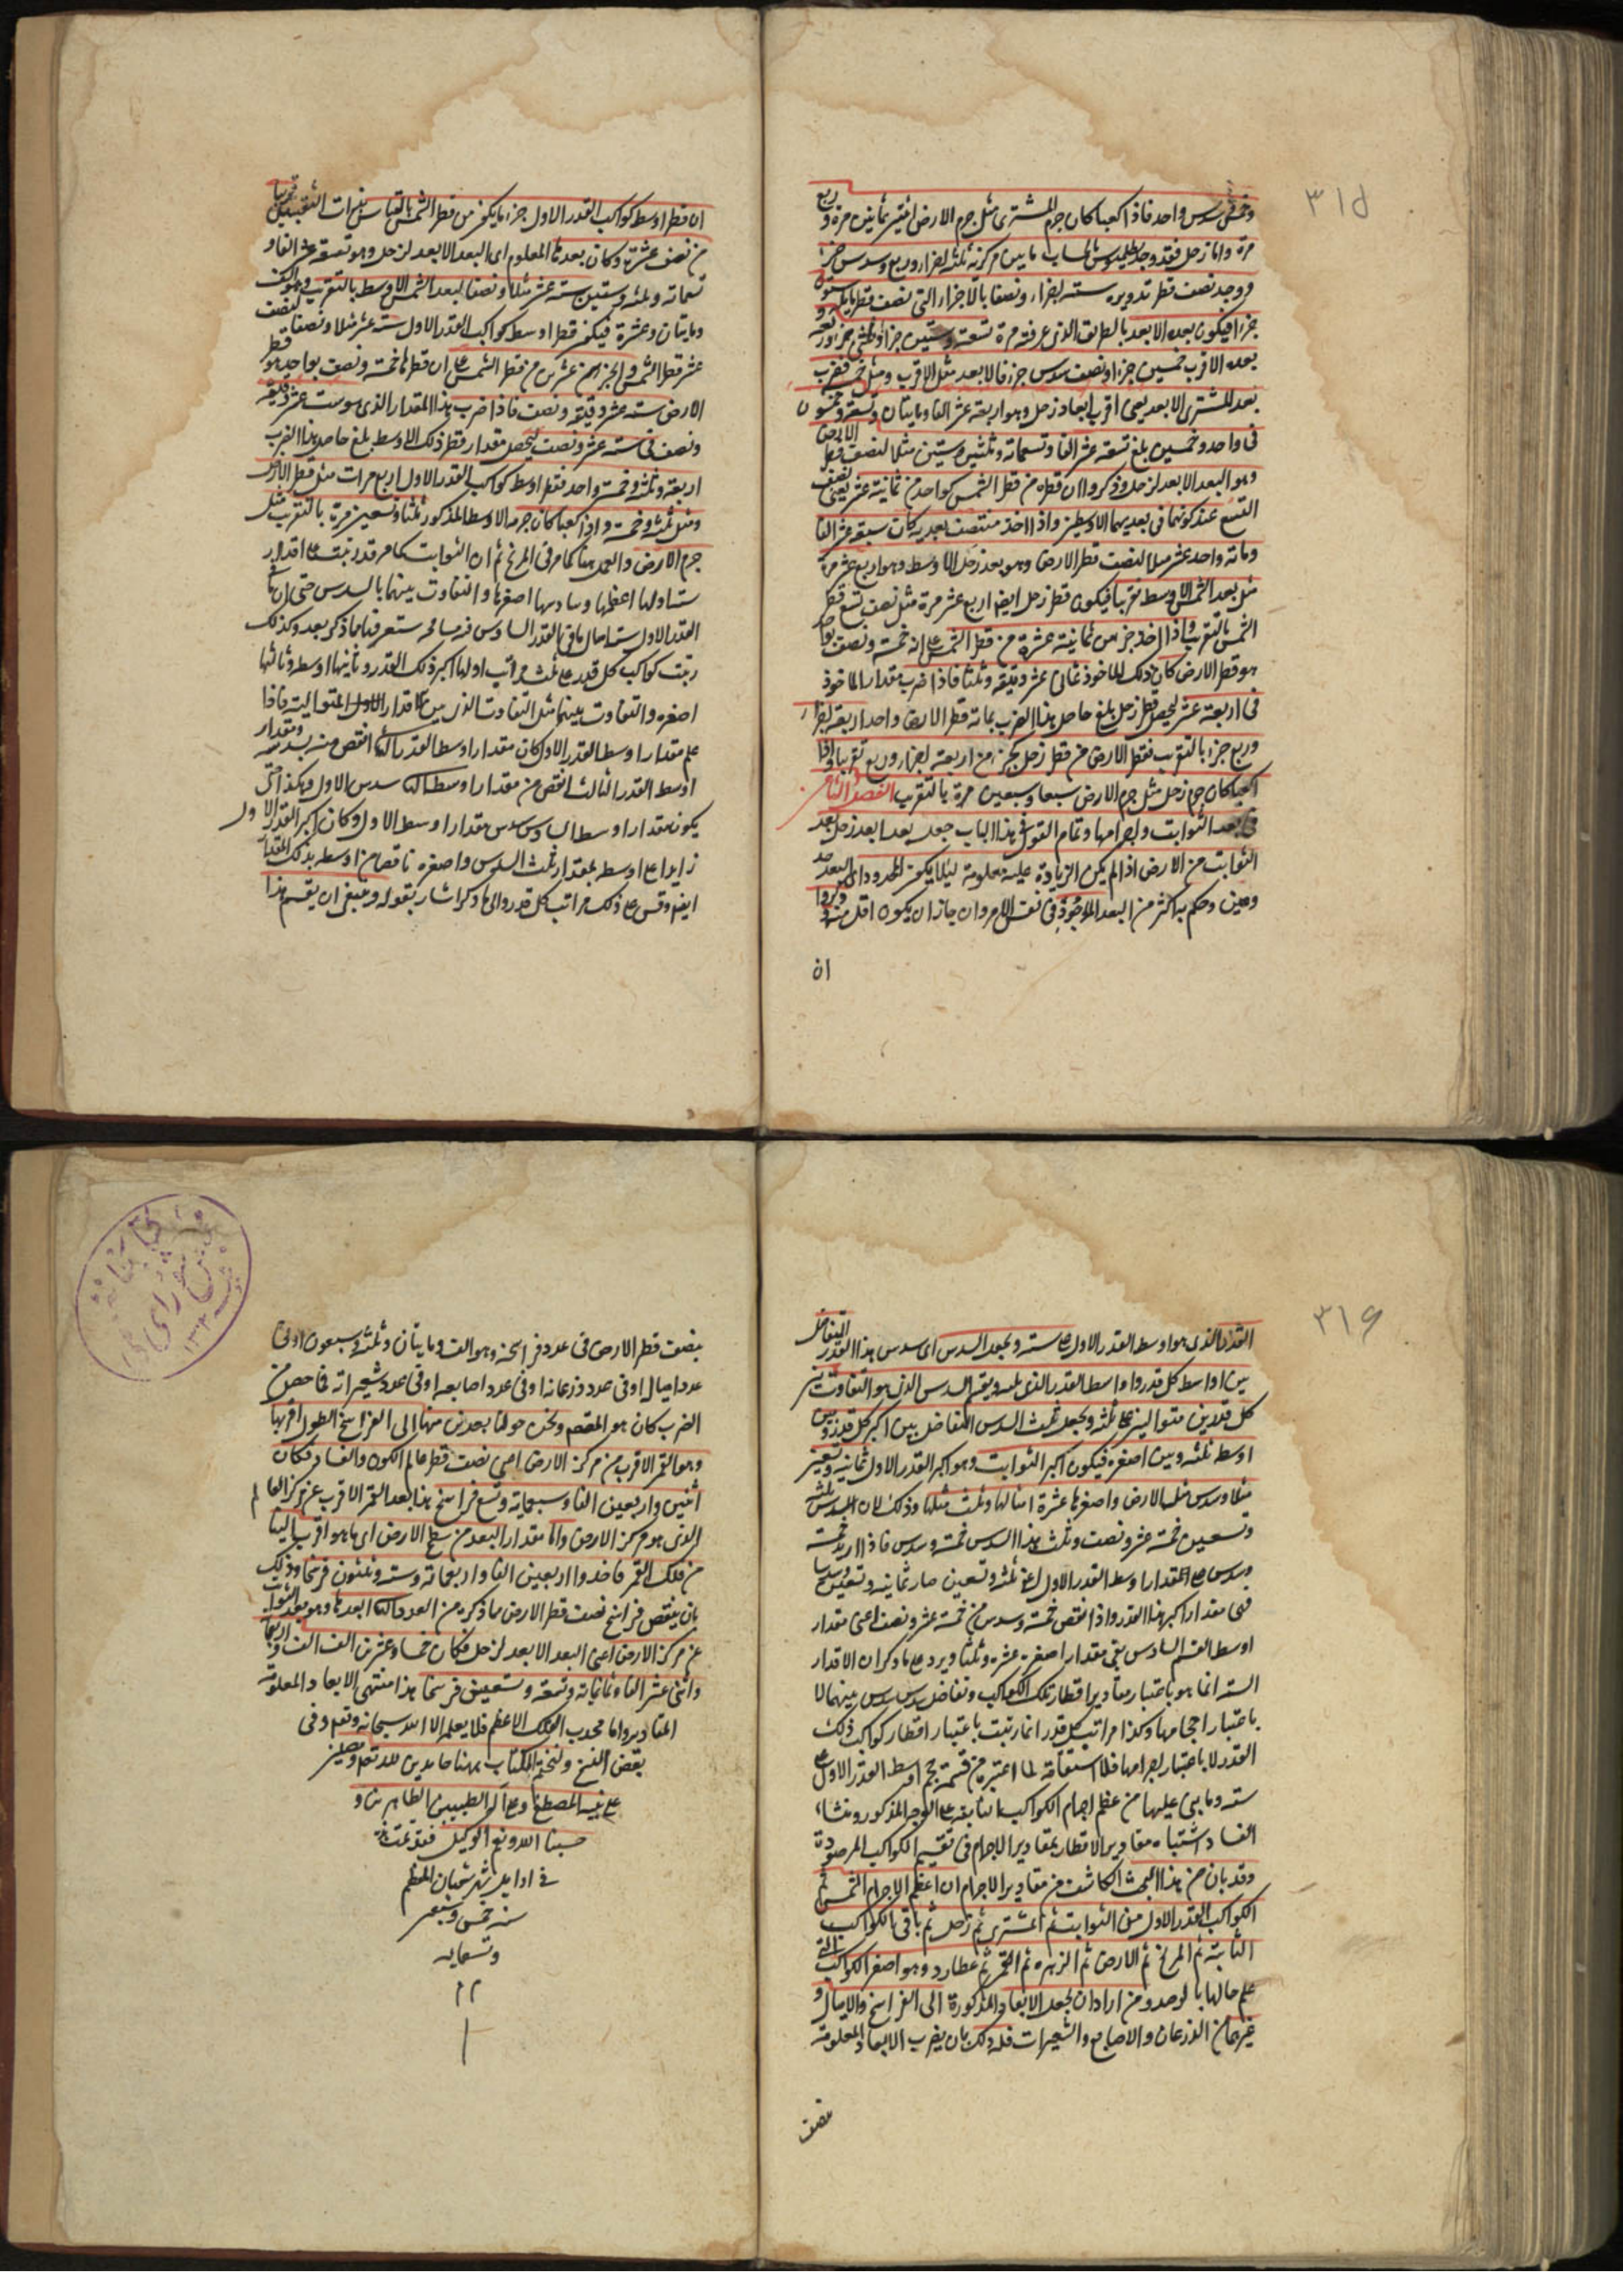 ٣١٥
وخمس سدس واحد فاذا كعبا كان جرم المشترى مثل جرم الارض اثنتين وثمانين مرة وربع
مرة واما زحل فقد وجد بطليموس بالحساب ما بين مركزيه ثلثة اجزاء وربع وسدس جزء
ووجد نصف قطر تدويره ستة اجزاء ونصفا بالاجزاء التى نصف قطر مايله ستون
جزءا فيكون بعده الابعد بالطريق الذى عرفته مرة تسعة وستين جزءا وثلثى جزء وربعه
بعده الاقرب خمسين جزءا ونصف سدس جزء فالابعد مثل الاقرب ومثل خمسيه فضرب
بعد المشترى الابعد يعنى اقرب ابعاد زحل وهو اربعة عشر الفا ومايتان وتسعة وخمسون
فى واحد وخمسين بلغ تسعة عشر الفا وتسعمائة وثلثة وستين مثلا لنصف قطر الارض
وهو البعد الابعد لزحل وذكروا ان قطره من قطر الشمس كواحد من ثمانية عشر يعنى نصف
التسع عند كونهما فى بعديهما الاوسطين واذا اخذ منتصف بعديه كان سبعة عشر الفا
ومائة واحد عشر مثلا لنصف قطر الارض وهو بعد زحل الاوسط وهو اربع عشر مرة
مثل بعد الشمس الاوسط تقريبا فيكون قطر زحل ايضا اربع عشر مرة مثل نصف تسع قطر
الشمس بالتقريب واذا اخذ جزء من ثمانية عشرة من قطر الشمس على انه خمسة ونصف بواحد
هو قطر الارض كان ذلك الماخوذ ثمانى عشر دقيقة وثلثا فاذا ضرب مقدار الماخوذ
فى اربعة عشر ليحصل قطر زحل بلغ حاصل هذا الضرب بما به قطر الارض واحد اربعة اجزاء
وربع جزء بالتقريب فقطر الارض من قطر زحل كجزء من اربعة اجزاء وربع تقريبا واذا
كعبا كان جرم زحل مثل جرم الارض سبعا وسبعين مرة بالتقريب الفصل الثامن
فى بعد الثوابت واجرامها وتمام القول فى هذا الباب جعل بعد ابعد زحل بعد
الثوابت من الارض اذ لم يكن الزيادة عليه معلومة ليلا يكثر الحدود اى البعد حد
ومعين وحكم به اكثر من البعد الموجود فى نفس الامر وان جاز ان يكون اقل منه وذكروا
ان
ان قطر اوسط كواكب القدر الاول جزء ما يكون من قطر الشمس بالقياس بذات الثقبتين تقريبا
من نصف عشرة وكان بعدها المعلوم اى البعد الابعد لزحل وهو تسعة عشر الفا و
تسعمائة وثلثه وستين ستة عشر مثلا ونصفا لبعد الشمس الاوسط بالتقريب وهو الف
ومايتان وعشرة فيكون قطر اوسط كواكب القدر الاول ستة عشر مثلا ونصفا لنصف
عشر قطر الشمس والجزء من عشرين من قطر الشمس على ان قطرها خمسة ونصف بواحد هو قطر
الارض ستة عشر دقيقة ونصف فاذا ضرب هذا المقدار الذى هو ست عشر دقيقة
ونصف فى ستة عشر ونصف ليحصل مقدار قطر ذلك الاوسط بلغ حاصل هذا الضرب
اربعة وثلثه وخمسة واحد فقطر اوسط كواكب القدر الاول اربع مرات مثل قطر الارض
ومثل ثلثه وخمسه واذا كعبا كان جرمه الاوسط المذكور ثلثا وتسعين مرة بالتقريب مثل
جرم الارض والعمل هنا كما مر فى المريخ ثم ان الثوابت كما مر قد رتبت على اقدار
ستة اولها اعظمها وسادسها اصغرها والتفاوت بينهما بالسدس حتى ان
القدر الاول ستة امثال ما فى القدر السادس ستعرفها مما ذكر بعد وكذلك
رتبت كواكب كل قدر على ثلث مراتب اولها اكبر ذلك القدر وثانيها اوسطه وثالثها
اصغره والتفاوت بينهما مثل التفاوت الذى بين الاقدار الاول المتوالية فاذا
علم مقدار اوسط القدر الاول كان مقدار اوسط القدر الثانى انقص منه بسدسه ومقدار
اوسط القدر الثالث انقص من مقدار اوسط الثانى سدس الاول وهكذا حتى
يكون مقدار اوسط السادس سدس مقدار اوسط الاول وكان اكبر القدر الاول
زايدا على اوسطه بمقدار ثلث السدس واصغره ناقصا من اوسطه بذلك المقدار
ايضا وقس على ذلك مراتب كل قدر والى ما ذكر اشار بقوله وينبغى ان يقسم هذا
٣١٦
القدر الذى هو اوسط القدر الاول على ستة ويجعل السدس اى سدس هذا القدر التفاضل
بين اواسط كل قدر واواسط القدر الذى يليه ويقسم السدس الذى هو التفاوت بين
كل قدرين متواليين على ثلثة ويجعل ثلث السدس التفاضل بين اكبر كل قدر وبين
اوسطه ثلثه وبين اصغره فيكون اكبر الثوابت وهو اكبر القدر الاول ثمانية وتسعين
مثلا وسدس مثل الارض واصغرها عشرة امثالها وثلث مثلها وذلك لان السدس ثلثه
وتسعين خمسة عشر ونصف وثلث هذا السدس خمسة وسدس فاذا زيد خمسة
وسدس على مقدار اوسط القدر الاول اعنى ثلثه وتسعين صار ثمانية وتسعين وسدسا
فهى مقدار اكبر هذا القدر واذا نقص خمسة وسدس من خمسة عشر ونصف اعنى مقدار
اوسط القسم السادس بقى مقدار اصغره عشرة وثلثا ويرد على ما ذكر ان الاقدار
الستة انما هو باعتبار مقادير اقطار تلك الكواكب وتفاضل سدس سدس بينهما لا
باعتبار احجامها وكذا مراتب كل قدر انما رتبت باعتبار اقطار كواكب ذلك
القدر لا باعتبار اجرامها فلا استقامة لما اعتبره من قسمة جرم اوسط القدر الاول على
ستة وما بنى عليها من عظم اجرام الكواكب الثابتة على الوجه المذكور ومنشاء
الفساد اشتباه مقادير الاقطار بمقادير الاجرام فى تقسيم الكواكب المرصودة
وقد بان من هذا البحث الكاشف من مقادير الاجرام ان اعظم الاجرام الشمس ثم
الكواكب القدر الاول من الثوابت ثم المشترى ثم زحل ثم باقى الكواكب
الثابتة ثم المريخ ثم الارض ثم الزهره ثم القمر ثم عطارد وهو اصغر الكواكب التى
علم حالها بالرصد ومن اراد ان يجعل الابعاد المذكورة الى الفراسخ والاميال و
غيرهما من الذرعان والاصابع والشعيرات فله ذلك بان يضرب الابعاد المعلومة
نصف
بنصف قطر الارض فى عدد فراسخه وهو الف ومايتان وثلثه وسبعون او فى
عدد اميال او فى عدد ذرعانه او فى عدد اصابعه او فى عدد شعيراته فما حصل من
الضرب كان هو المقصود ونحن حولنا بعدين منها الى الفراسخ الطول اقربها
وهو القمر الاقرب من مركز الارض اعنى نصف قطر عالم الكون والفساد فكان
اثنين واربعين الفا وسبعمائة وتسع فراسخ هذا بعد القمر الاقرب عن مركز العالم
الذى هو مركز الارض واما مقدار البعد من سطح الارض اى ما هو اقرب الينا
من فلك القمر فاحد واربعين الفا واربعمائة وستة وثلثون فرسخا وذلك
بان ينقص فراسخ نصف قطر الارض مما ذكره من العدد والثانى ابعدها وهو بعد الثوابت
عن مركز الارض اعنى البعد الابعد لزحل فكان خمسا وعشرين الف الف واربعمائة
واثنى عشر الفا وثمانمائة وتسعة وتسعين فرسخا هذا منتهى الابعاد المعلومة
المقادير واما محدب الفلك الاعظم فلا يعلمه الا الله سبحانه وتعالى وفى
بعض النسخ ولنختم الكتاب ههنا حامدين لله تعالى ومصلين
على نبيه المصطفى وعلى آله الطيبين الطاهرين و
حسبنا الله ونعم الوكيل فقد تمت
فى اوايل شهر شعبان المعظم
سنة خمس وسبعين
وتسعمايه